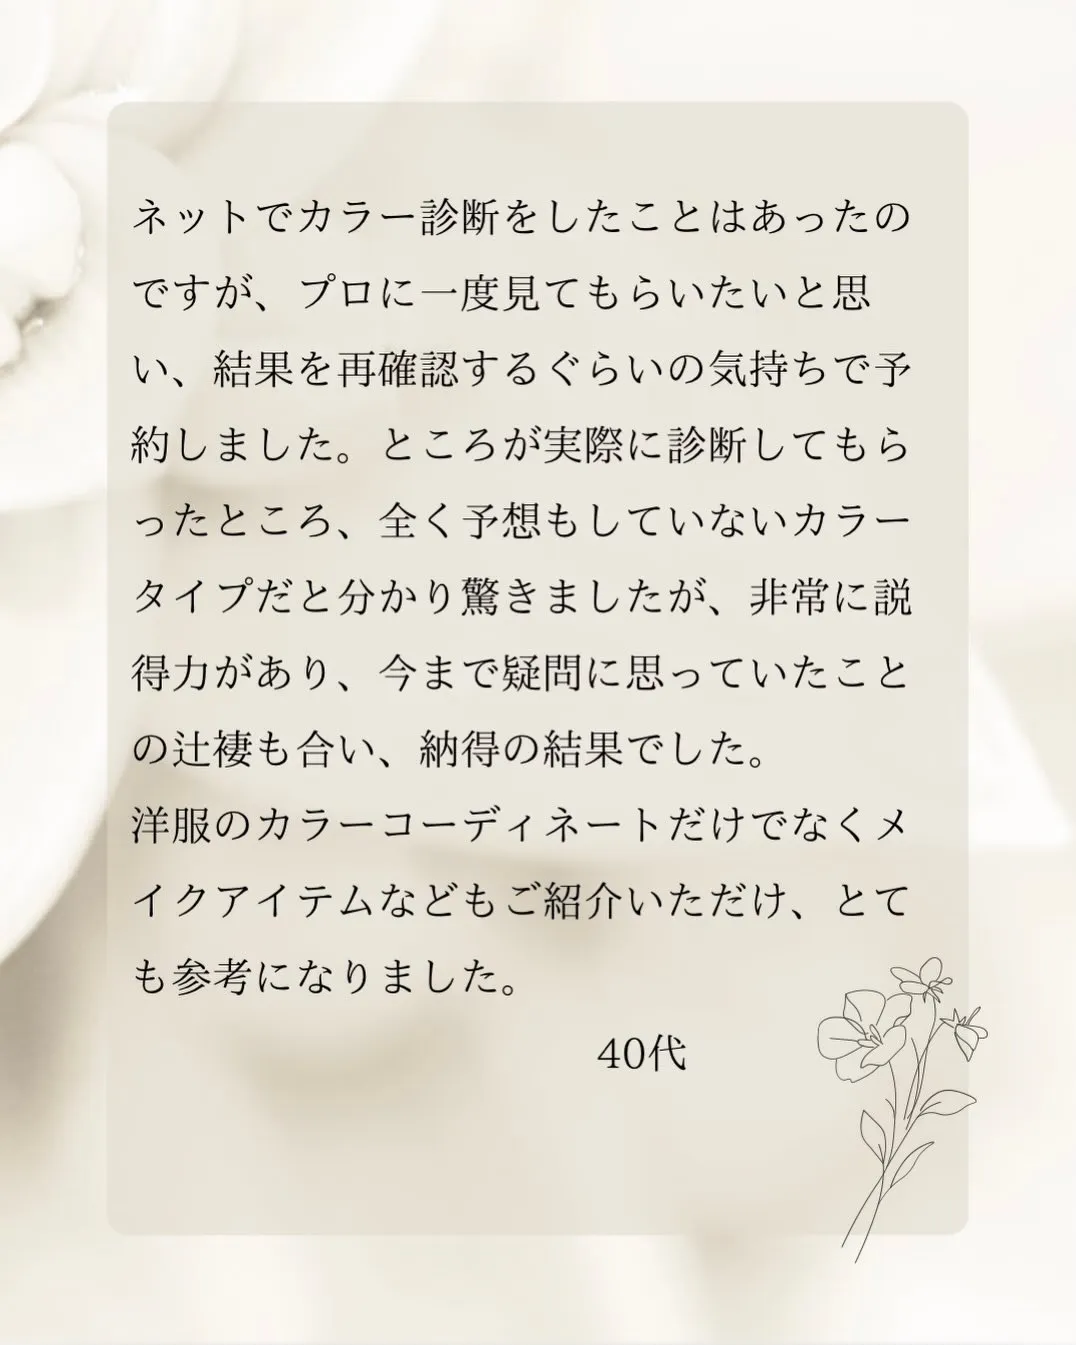 ネットでカラー診断をしたことはあったの
ですが、プロに一度見てもらいたいと思
い、結果を再確認するぐらいの気持ちで予
約しました。ところが実際に診断してもら
ったところ、全く予想もしていないカラー
タイプだと分かり驚きましたが、非常に説
得力があり、今まで疑問に思っていたこと
の辻褄も合い、納得の結果でした。
洋服のカラーコーディネートだけでなくメ
イクアイテムなどもご紹介いただけ、とて
も参考になりました。
40代